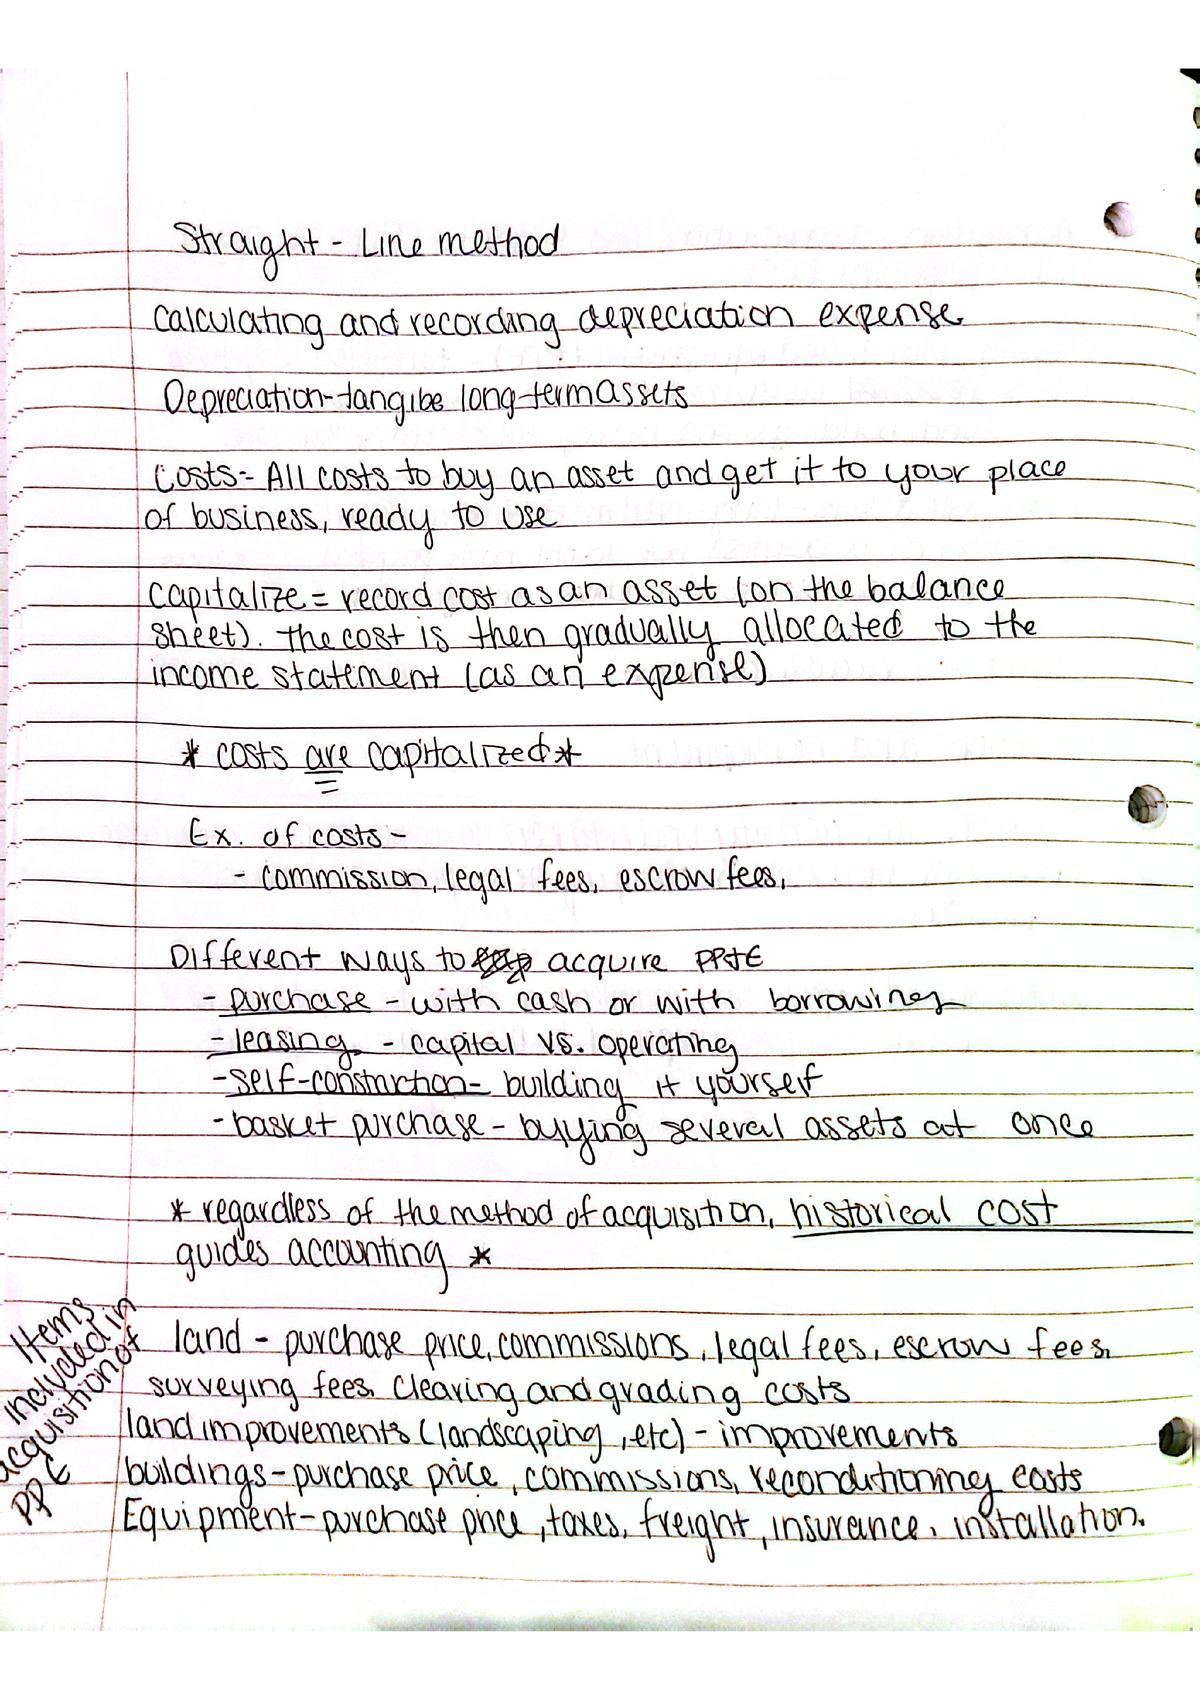 Straight - Line method
Calculating and recording depreciation expense
Depreciation - tangibe long-term assets
Costs = All costs to buy an asset and get it to your place
of business, ready to use
Capitalize = record cost as an asset (on the balance
sheet). The cost is then gradually allocated to the
income statement (as an expense)
* costs are capitalized *
Ex. of costs -
- commission, legal fees, escrow fees,
Different ways to acquire PP&E
- purchase - with cash or with borrowing
- leasing - capital vs. operating
- self-construction - building it yourself
- basket purchase - buying several assets at once
* regardless of the method of acquisition, historical cost
guides accounting *
Items
included in
acquisition of
PPE
land - purchase price, commissions, legal fees, escrow fees,
surveying fees, clearing and grading costs
land improvements (landscaping, etc) - improvements
buildings - purchase price, commissions, reconditioning costs
Equipment - purchase price, taxes, freight, insurance, installation.